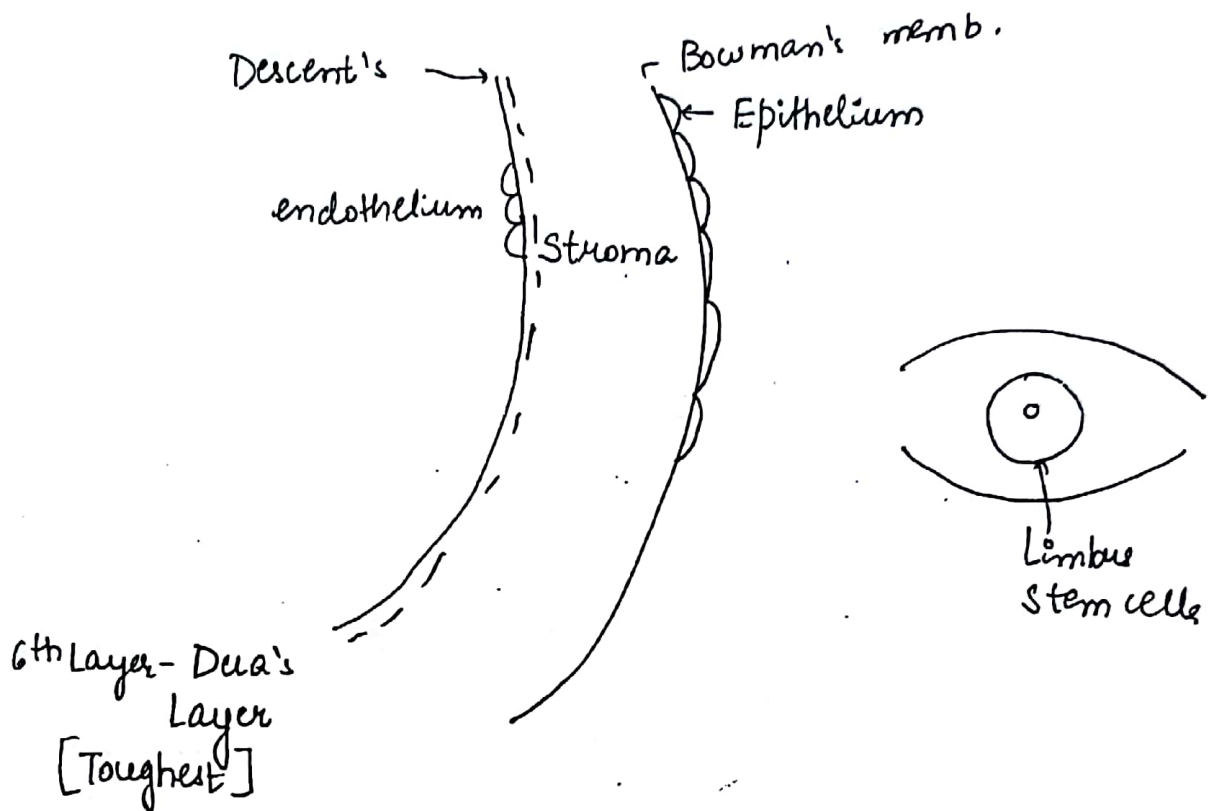 Bowman's memb.
Descent's
Epithelium
endothelium
Stroma
Limbus
Stem cells
6th Layer - Dua's
Layer
[Toughest]